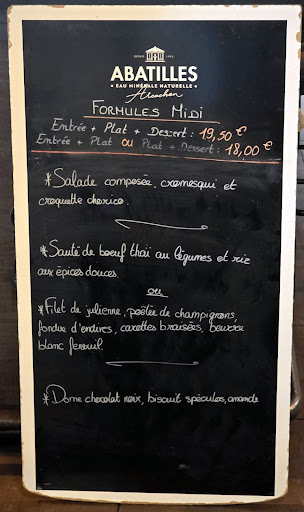 DEPUIS 1923
ABATILLES
• EAU MINÉRALE NATURELLE •
Arcachon
FORMULES MIDI
Entrée + Plat + Dessert : 19,50 €
Entrée + Plat ou Plat + Dessert : 18,00 €
*Salade composée, cromesqui et
croquette chorizo.
*Sauté de boeuf thaï au légumes et riz
aux épices douces.
ou
*Filet de julienne, poêlée de champignons,
fondue d'endives, carottes braisées, beurre
blanc fenouil
*Dome chocolat noix, biscuit spéculos, amande